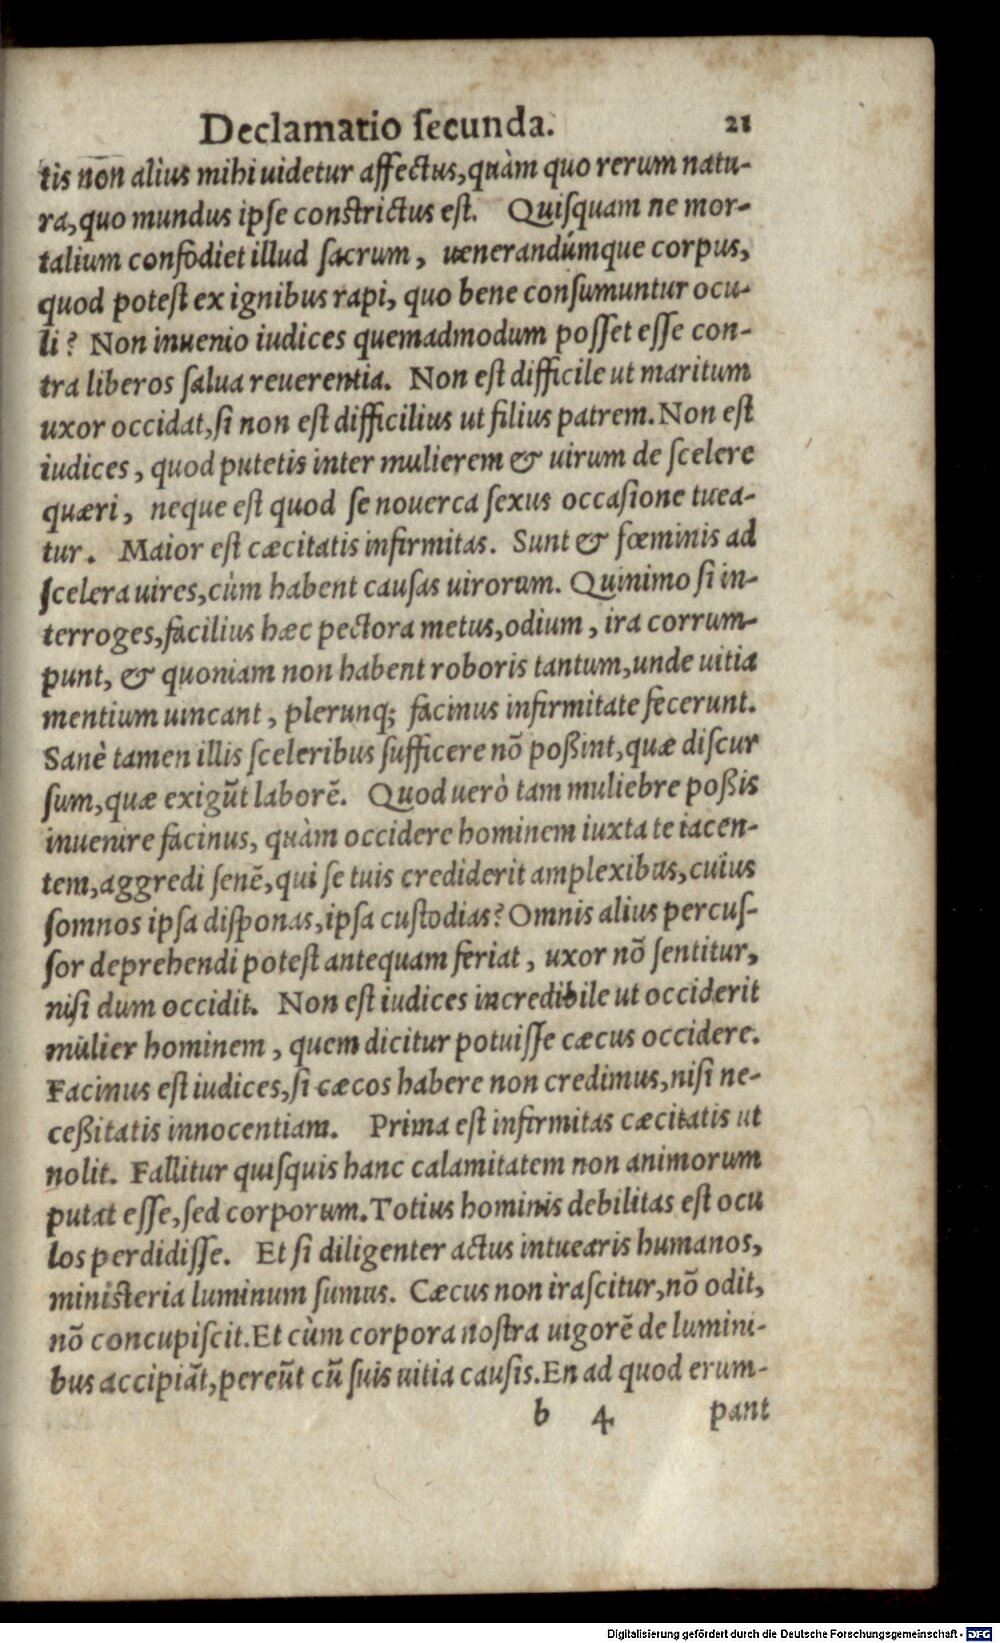 Declamatio ſecunda. 21
tis non alius mihi uidetur affectus, quàm quo rerum natu-
ra, quo mundus ipſe conſtrictus eſt. Quiſquam ne mor-
talium confodiet illud ſacrum, uenerandúmque corpus,
quod poteſt ex ignibus rapi, quo bene conſumuntur ocu-
li? Non inuenio iudices quemadmodum poſſet eſſe con-
tra liberos ſalua reuerentia. Non eſt difficile ut maritum
uxor occidat, ſi non eſt difficilius ut filius patrem. Non eſt
iudices, quod putetis inter mulierem & uirum de ſcelere
quæri, neque eſt quod ſe nouerca ſexus occaſione tuea-
tur. Maior eſt cæcitatis infirmitas. Sunt & fœminis ad
ſcelera uires, cùm habent cauſas uirorum. Quinimo ſi in-
terroges, facilius hæc pectora metus, odium, ira corrum-
punt, & quoniam non habent roboris tantum, unde uitia
mentium uincant, plerunq; facinus infirmitate fecerunt.
Sanè tamen illis ſceleribus ſufficere nõ poßint, quæ diſcur
ſum, quæ exigũt laborẽ. Quod uerò tam muliebre poßis
inuenire facinus, quàm occidere hominem iuxta te iacen-
tem, aggredi ſenẽ, qui ſe tuis crediderit amplexibus, cuius
ſomnos ipſa diſponas, ipſa cuſtodias? Omnis alius percuſ-
ſor deprehendi poteſt antequam feriat, uxor nõ ſentitur,
niſi dum occidit. Non eſt iudices incredibile ut occiderit
mulier hominem, quem dicitur potuiſſe cæcus occidere.
Facinus eſt iudices, ſi cæcos habere non credimus, niſi ne-
ceßitatis innocentiam. Prima eſt infirmitas cæcitatis ut
nolit. Fallitur quiſquis hanc calamitatem non animorum
putat eſſe, ſed corporum. Totius hominis debilitas eſt ocu
los perdidiſſe. Et ſi diligenter actus intuearis humanos,
miniſteria luminum ſumus. Cæcus non iraſcitur, nõ odit,
nõ concupiſcit. Et cùm corpora noſtra uigorẽ de lumini-
bus accipiãt, pereũt cũ ſuis uitia cauſis. En ad quod erum-
b 4 pant
Digitalisierung gefördert durch die Deutsche Forschungsgemeinschaft - DFG